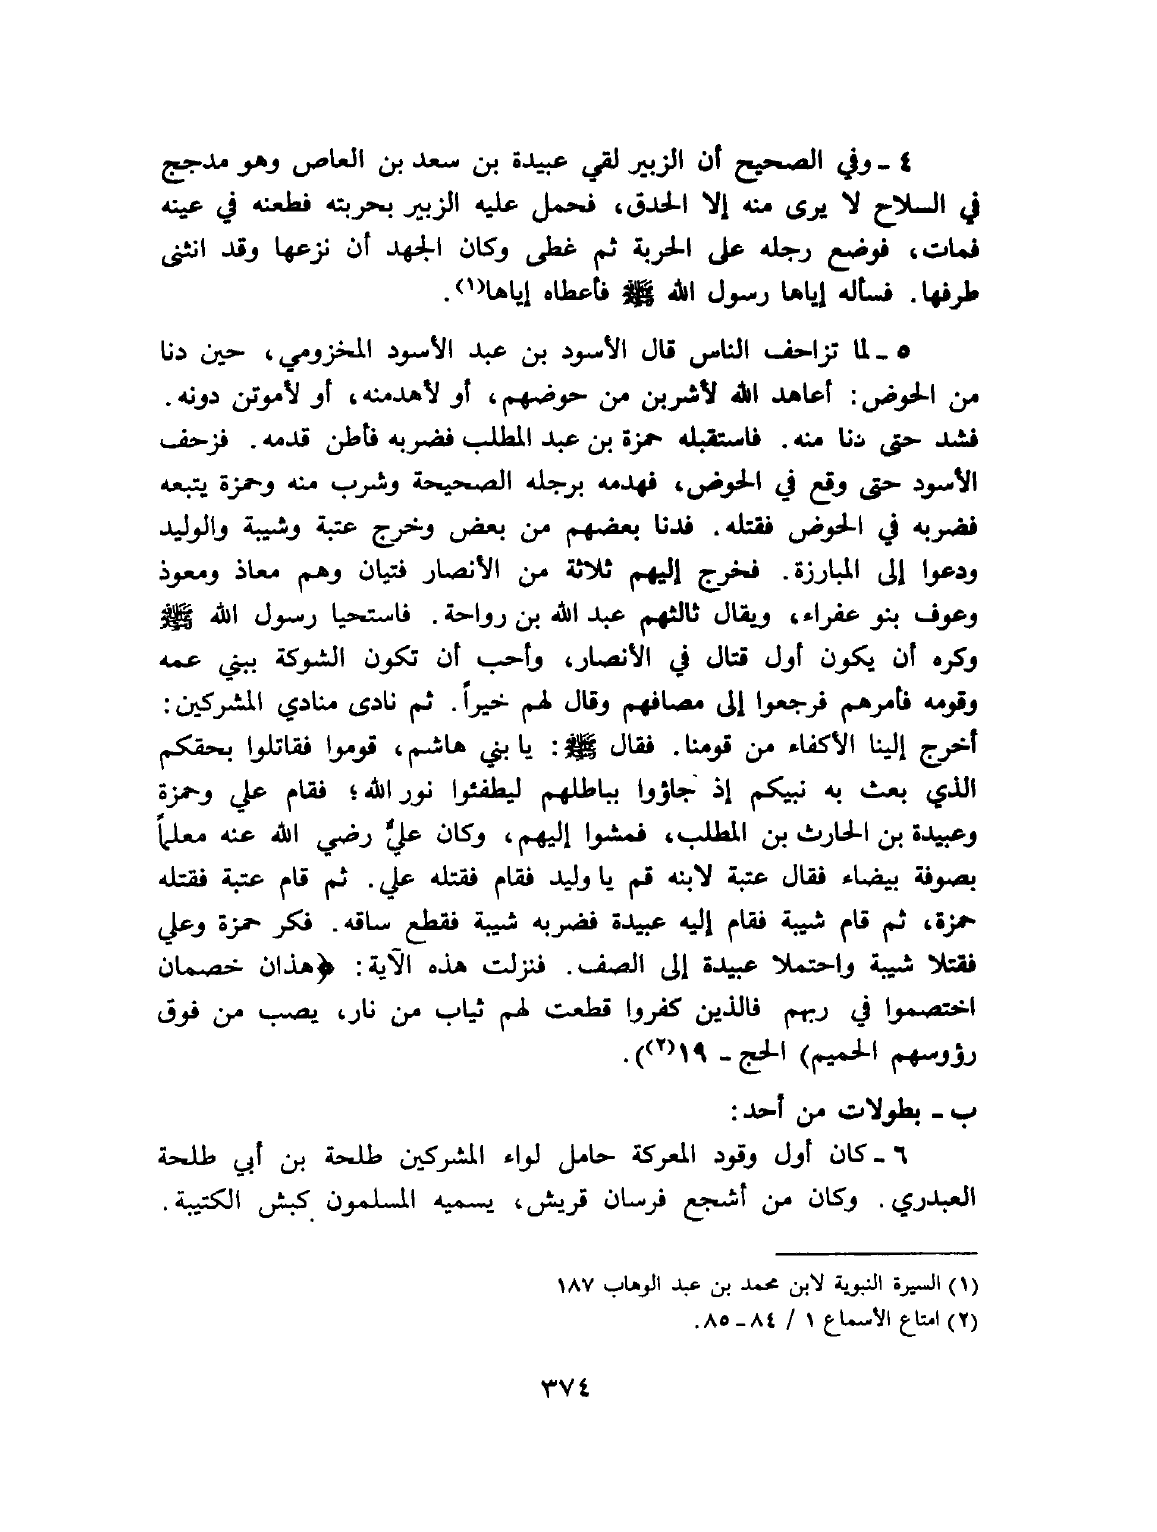 ٤ ـ وفي الصحيح أن الزبير لقي عبيدة بن سعد بن العاص وهو مدجج
في السلاح لا يرى منه إلا الحدق، فحمل عليه الزبير بحربته فطعنه في عينه
فمات، فوضع رجله على الحربة ثم غطى وكان الجهد أن نزعها وقد انثنى
طرفها. فسأله إياها رسول الله ﷺ فأعطاه إياها(١).
٥ ـ لما تزاحف الناس قال الأسود بن عبد الأسود المخزومي، حين دنا
من الحوض: أعاهد الله لأشربن من حوضهم، أو لأهدمنه، أو لأموتن دونه.
فشد حتى دنا منه. فاستقبله حمزة بن عبد المطلب فضربه فأطن قدمه. فزحف
الأسود حتى وقع في الحوض، فهدمه برجله الصحيحة وشرب منه وحمزة يتبعه
فضربه في الحوض فقتله. فدنا بعضهم من بعض وخرج عتبة وشيبة والوليد
ودعوا إلى المبارزة. فخرج إليهم ثلاثة من الأنصار فتيان وهم معاذ ومعوذ
وعوف بنو عفراء، ويقال ثالثهم عبد الله بن رواحة. فاستحيا رسول الله ﷺ
وكره أن يكون أول قتال في الأنصار، وأحب أن تكون الشوكة ببني عمه
وقومه فأمرهم فرجعوا إلى مصافهم وقال لهم خيراً. ثم نادى منادي المشركين:
أخرج إلينا الأكفاء من قومنا. فقال ﷺ: يا بني هاشم، قوموا فقاتلوا بحقكم
الذي بعث به نبيكم إذ جاؤوا بباطلهم ليطفئوا نور الله؛ فقام علي وحمزة
وعبيدة بن الحارث بن المطلب، فمشوا إليهم، وكان عليٌّ رضي الله عنه معلماً
بصوفة بيضاء فقال عتبة لابنه قم يا وليد فقام فقتله علي. ثم قام عتبة فقتله
حمزة، ثم قام شيبة فقام إليه عبيدة فضربه شيبة فقطع ساقه. فكر حمزة وعلي
فقتلا شيبة واحتملا عبيدة إلى الصف. فنزلت هذه الآية: ﴿هذان خصمان
اختصموا في ربهم فالذين كفروا قطعت لهم ثياب من نار، يصب من فوق
رؤوسهم الحميم) الحج ـ ١٩(٢)).
ب ـ بطولات من أحد:
٦ ـ كان أول وقود المعركة حامل لواء المشركين طلحة بن أبي طلحة
العبدري. وكان من أشجع فرسان قريش، يسميه المسلمون كبش الكتيبة.
(١) السيرة النبوية لابن محمد بن عبد الوهاب ١٨٧
(٢) امتاع الأسماع ١ / ٨٤ ـ ٨٥.
٣٧٤